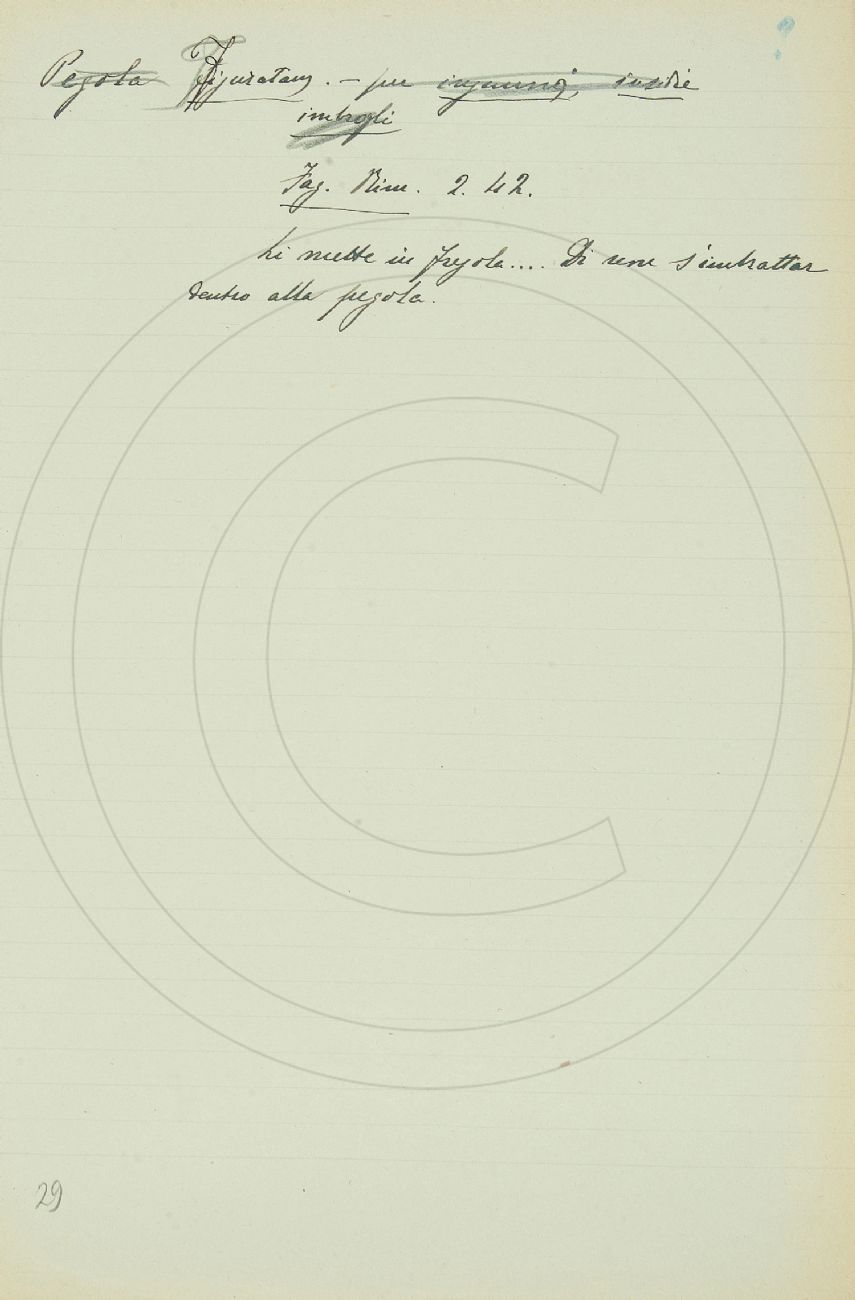 ?
Pegola Figuratam. - per inganni, insidie
imbrogli
Fag. Rim. 2. 42.
Li mette in fregola.... Di non s'imbrattar
dentro alla pegola.
29